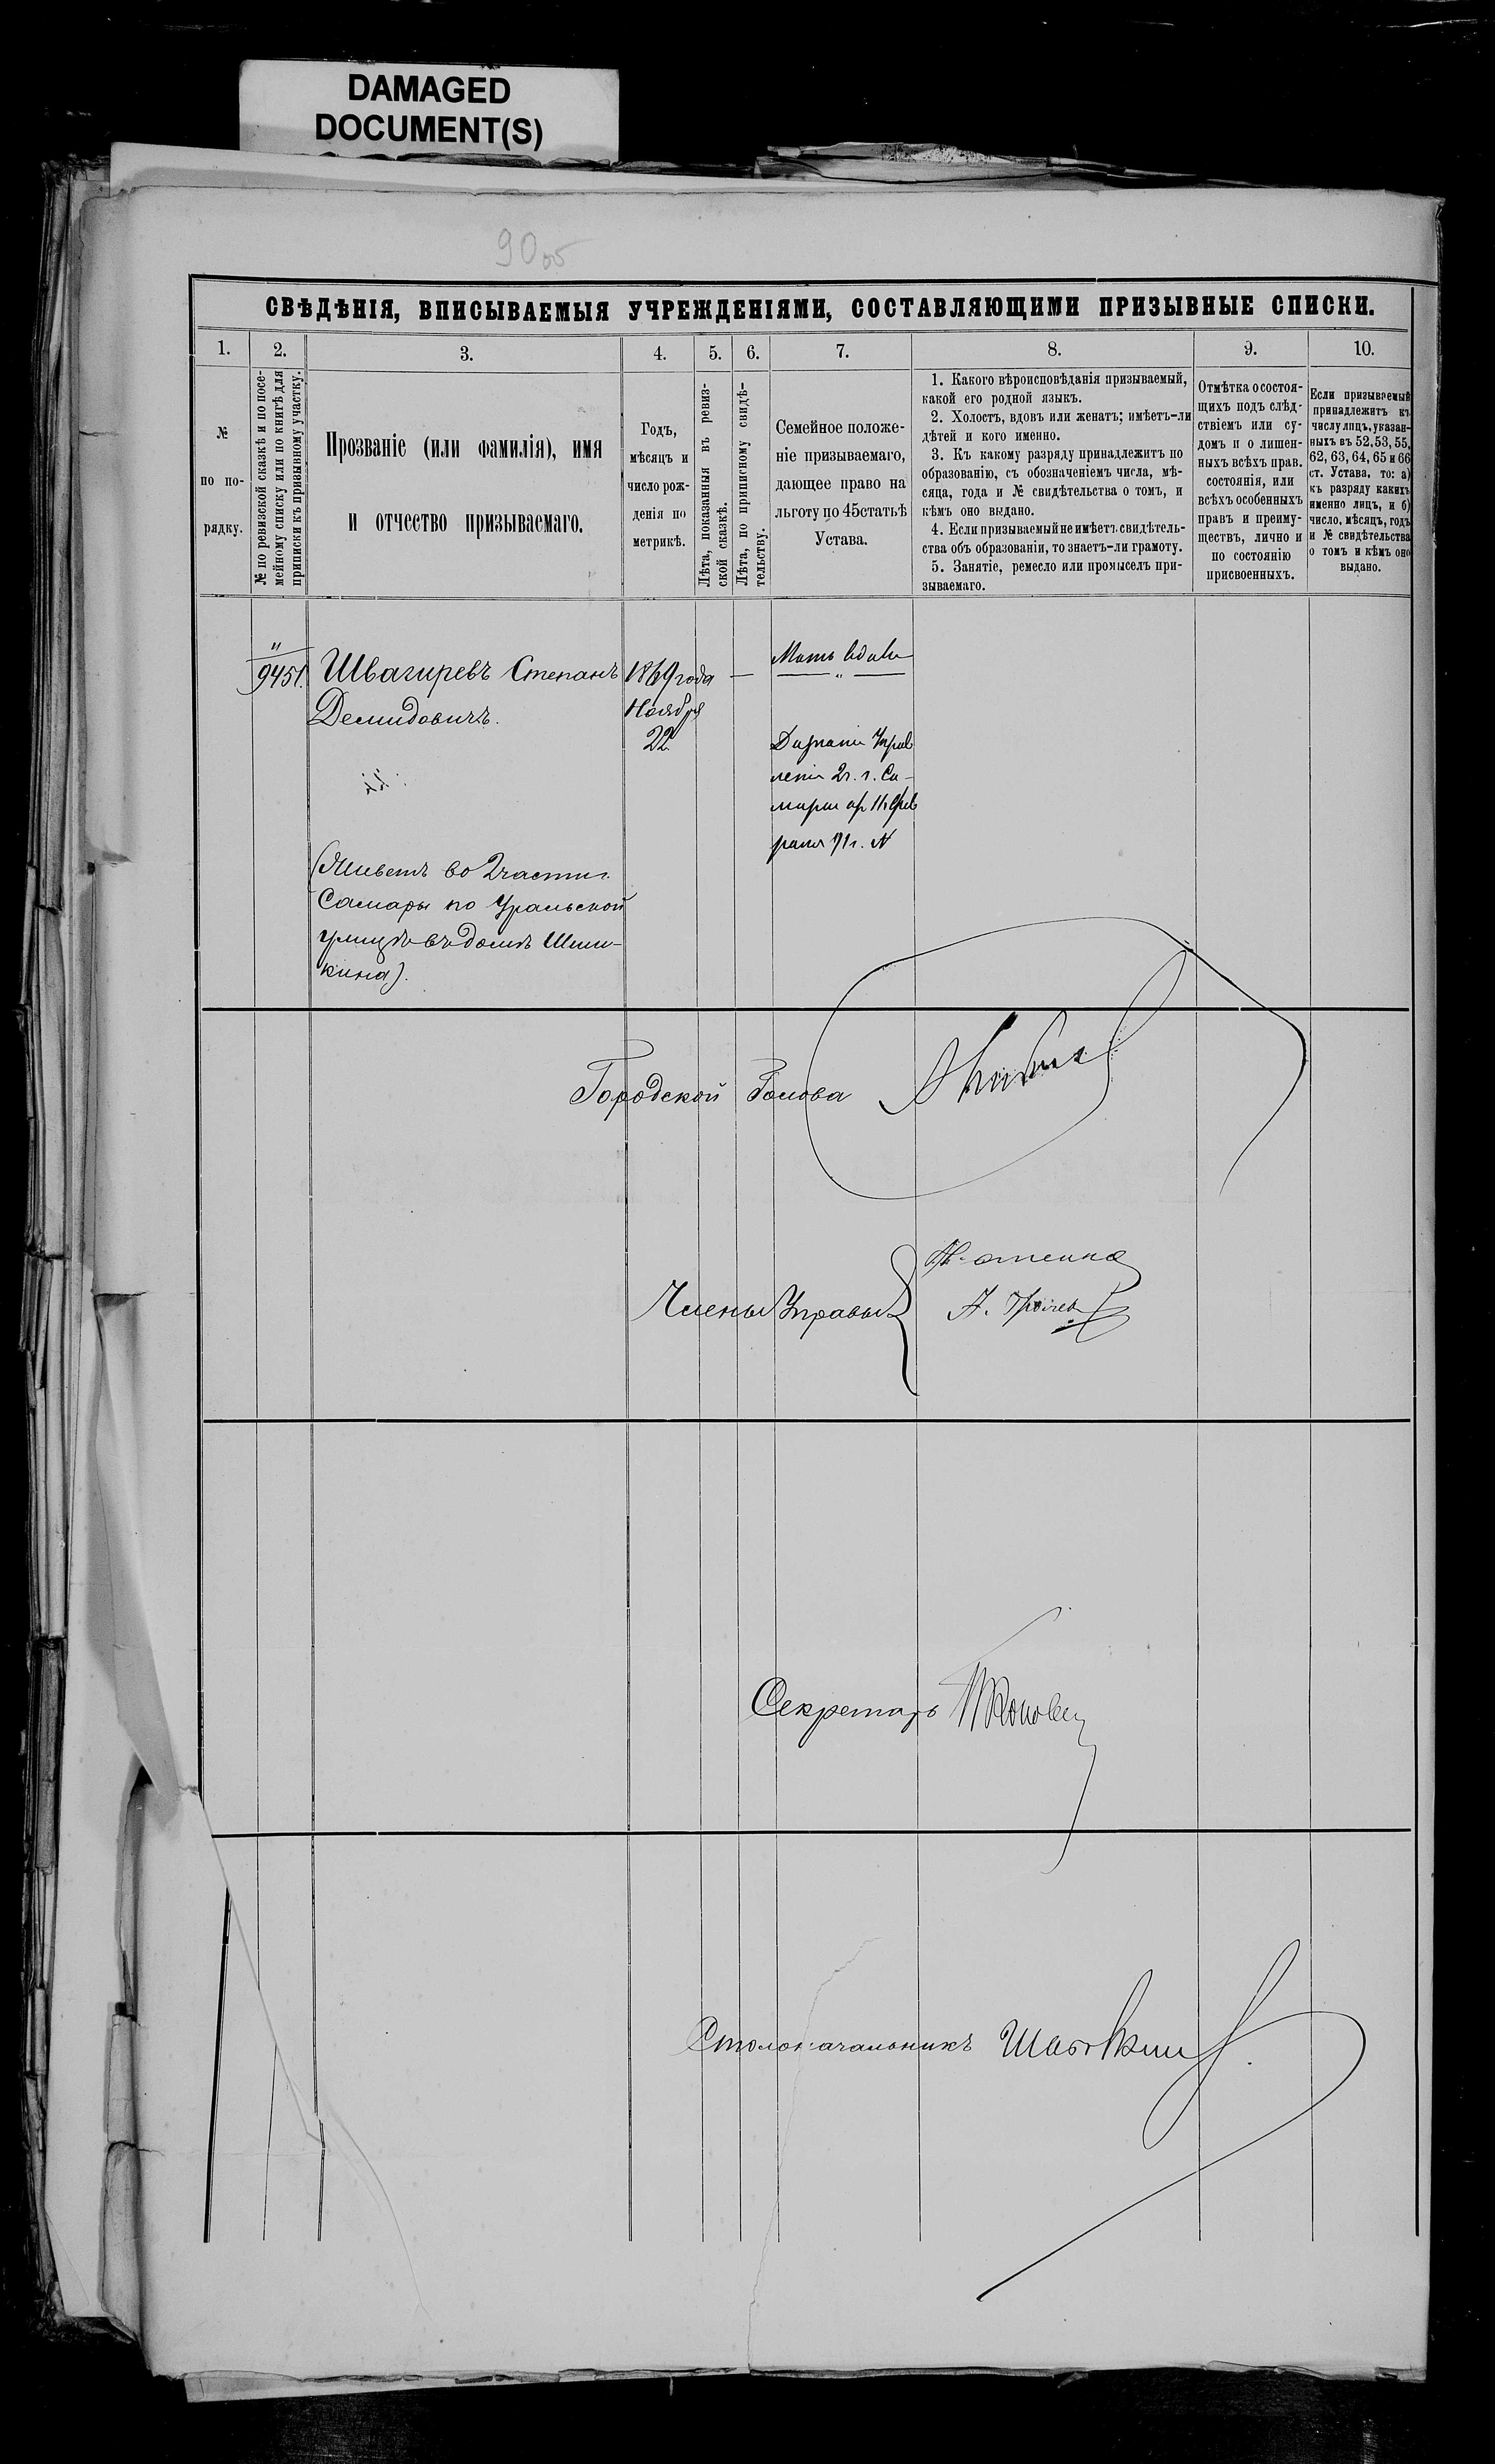 DAMAGED
DOCUMENT(S)
90 об
СВѢДѢНІЯ, ВПИСЫВАЕМЫЯ УЧРЕЖДЕНІЯМИ, СОСТАВЛЯЮЩИМИ ПРИЗЫВНЫЕ СПИСКИ.
1.
2.
3.
4.
5.
6.
7.
8.
9.
10.
№
по по-
рядку.
№ по ревизской сказкѣ и по посе-
мейному списку или по книгѣ для
приписки къ призывному участку.
Прозваніе (или фамилія), имя
и отчество призываемаго.
Годъ,
мѣсяцъ и
число рож-
денія по
метрикѣ.
Лѣта, показанныя въ ревиз-
ской сказкѣ.
Лѣта, по приписному свидѣ-
тельству.
Семейное положе-
ніе призываемаго,
дающее право на
льготу по 45 статьѣ
Устава.
1. Какого вѣроисповѣданія призываемый,
какой его родной языкъ.
2. Холостъ, вдовъ или женатъ; имѣетъ-ли
дѣтей и кого именно.
3. Къ какому разряду принадлежитъ по
образованію, съ обозначеніемъ числа, мѣ-
сяца, года и № свидѣтельства о томъ, и
кѣмъ оно выдано.
4. Если призываемый не имѣетъ свидѣтель-
ства объ образованіи, то знаетъ-ли грамоту.
5. Занятіе, ремесло или промыселъ при-
зываемаго.
Отмѣтка о состоя-
щихъ подъ слѣд-
ствіемъ или су-
домъ и о лишен-
ныхъ всѣхъ прав.
состоянія, или
всѣхъ особенныхъ
правъ и преиму-
ществъ, лично и
по состоянію
присвоенныхъ.
Если призываемый
принадлежитъ къ
числу лицъ, указан-
ныхъ въ 52, 53, 55,
62, 63, 64, 65 и 66
ст. Устава, то: а)
къ разряду какихъ
именно лицъ, и б)
число, мѣсяцъ, годъ
и № свидѣтельства
о томъ и кѣмъ оно
выдано.
"
9451.
Швагиревъ Степанъ
Демидовичъ.
1869 года
Ноября
22
—
Мать вдова
— " —
Дознаніе Управ
ленія 2 ч. г. Са-
мары от 11 Фев
раля 91 г. №
(Живетъ во 2 части г.
Самары по Уральской
улицѣ въ домѣ Шиш-
кина).
Городской Голова
Члены Управы
Секретарь
Столоначальникъ